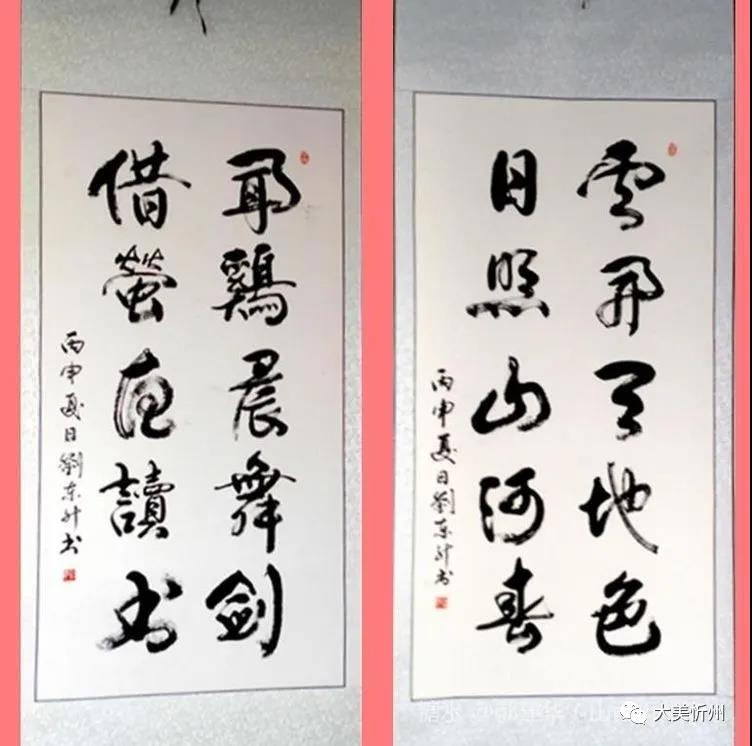 聞鷄晨舞剑
借萤夜讀书
丙申夏日劉东升书
雲開天地色
日照山河春
丙申夏日劉东升书
大美忻州